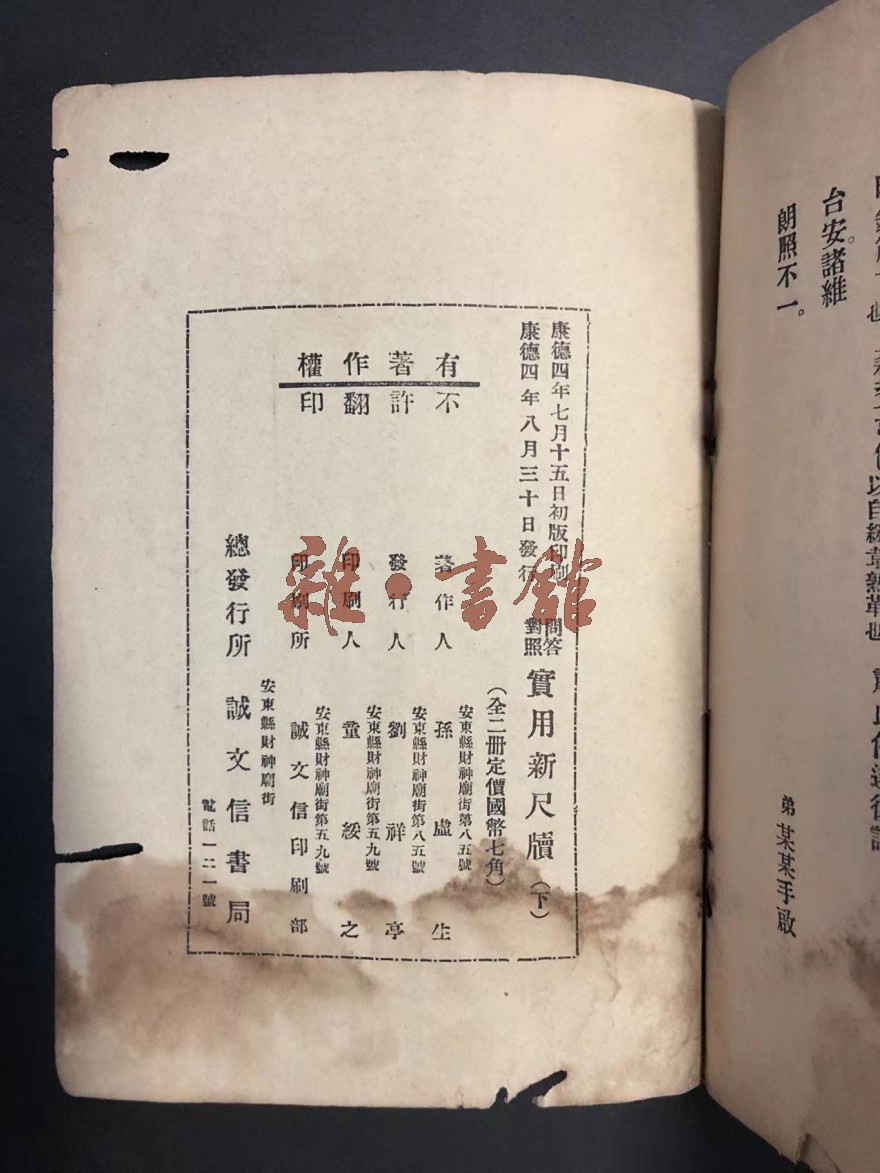 台安。諸維
朗照不一。
弟某某手啟
康德四年七月十五日初版印刷
康德四年八月三十日發行
問答對照 實用新尺牘（下）
（全二冊定價國幣七角）
有著作權
不許翻印
著作人
安東縣財神廟街第八五號
孫虛生
發行人
安東縣財神廟街第八五號
劉祥亭
印刷人
安東縣財神廟街第五九號
童綏之
印刷所
安東縣財神廟街第五九號
誠文信印刷部
總發行所
安東縣財神廟街
誠文信書局
電話一二一號
雜·書館